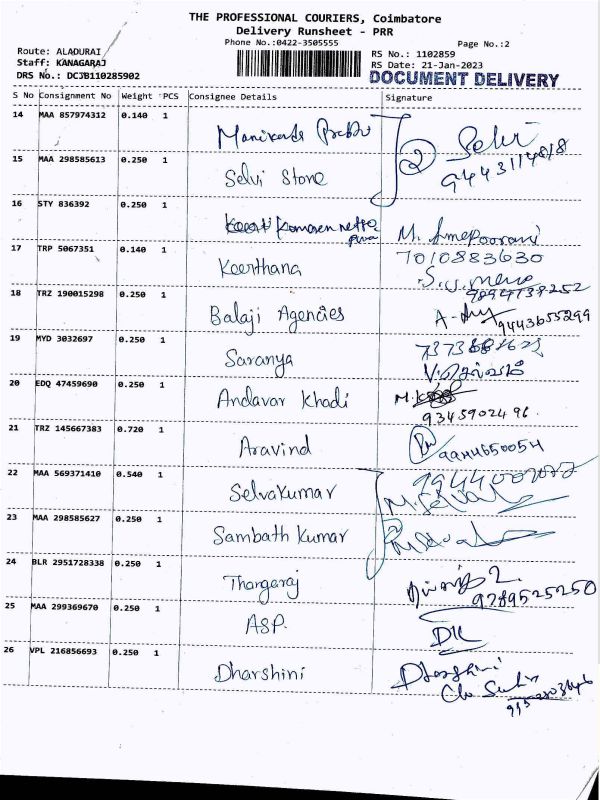 THE PROFESSIONAL COURIERS, Coimbatore
Delivery Runsheet - PRR
Phone No.:0422-3505555
Page No.:2
Route: ALADURAI
Staff: KANAGARAJ
DRS No.: DCJB110285902
RS No.: 1102859
RS Date: 21-Jan-2023
DOCUMENT DELIVERY
S No Consignment No Weight PCS Consignee Details Signature
14 MAA 857974312 0.140 1
15 MAA 298585613 0.250 1 Selvi Stone
2 Selvi
16 STY 836392 0.250 1
17 TRP 5067351 0.140 1 Keerthana 7010883630
18 TRZ 190015298 0.250 1 Balaji Agencies 9443655299
19 MYD 3032697 0.250 1 Saranya
20 EDQ 47459690 0.250 1 Andavar Khadi 9345902496.
21 TRZ 145667383 0.720 1 Aravind
22 MAA 569371410 0.540 1 Selvakumar
23 MAA 298585627 0.250 1 Sambath Kumar
24 BLR 2951728338 0.250 1 Thangaraj 9789525250
25 MAA 299369670 0.250 1 ASP. DK
26 VPL 216856693 0.250 1 Dharshini Dharshini